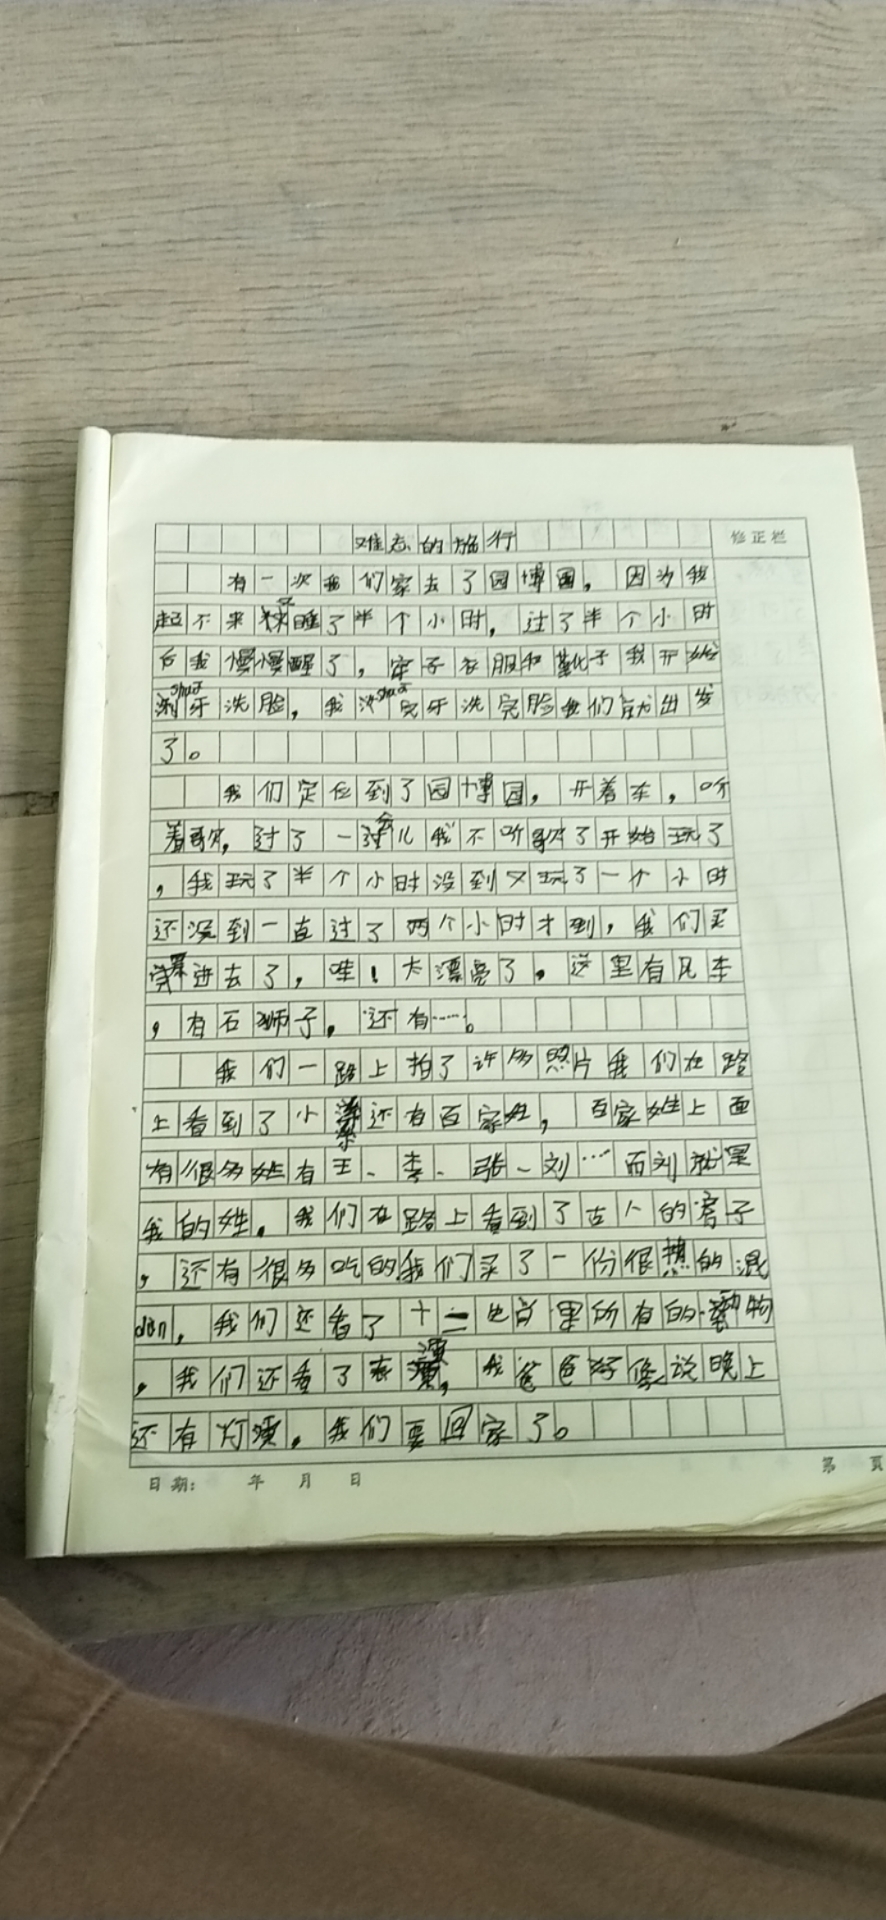 难忘的旅行
修正栏
有一次我们家去了园博园，因为我
起不来又睡了半个小时，过了半个小时
后我慢慢醒了，穿了衣服和靴子我开始
shuā
刷牙洗脸，我 shuā 完牙洗完脸我们就出发
了。
我们定位到了园博园，开着车，听
着歌，过了一会儿我不听歌了开始玩了
，我玩了半个小时没到又玩了一个小时
还没到一直过了两个小时才到，我们买
票进去了，哇！太漂亮了。这里有风车
，有石狮子，还有……。
我们一路上拍了许多照片我们在路
上看到了小 还有百家姓，百家姓上面
有很多姓有王、李、张、刘…而刘就是
我的姓。我们在路上看到了古人的房子
，还有很多吃的我们买了一份很热的混
dùn，我们还看了十二生肖里所有的动物
，我们还看了表演，我爸爸好像说晚上
还有灯演。我们要回家了。
日期：  年  月  日
第  页